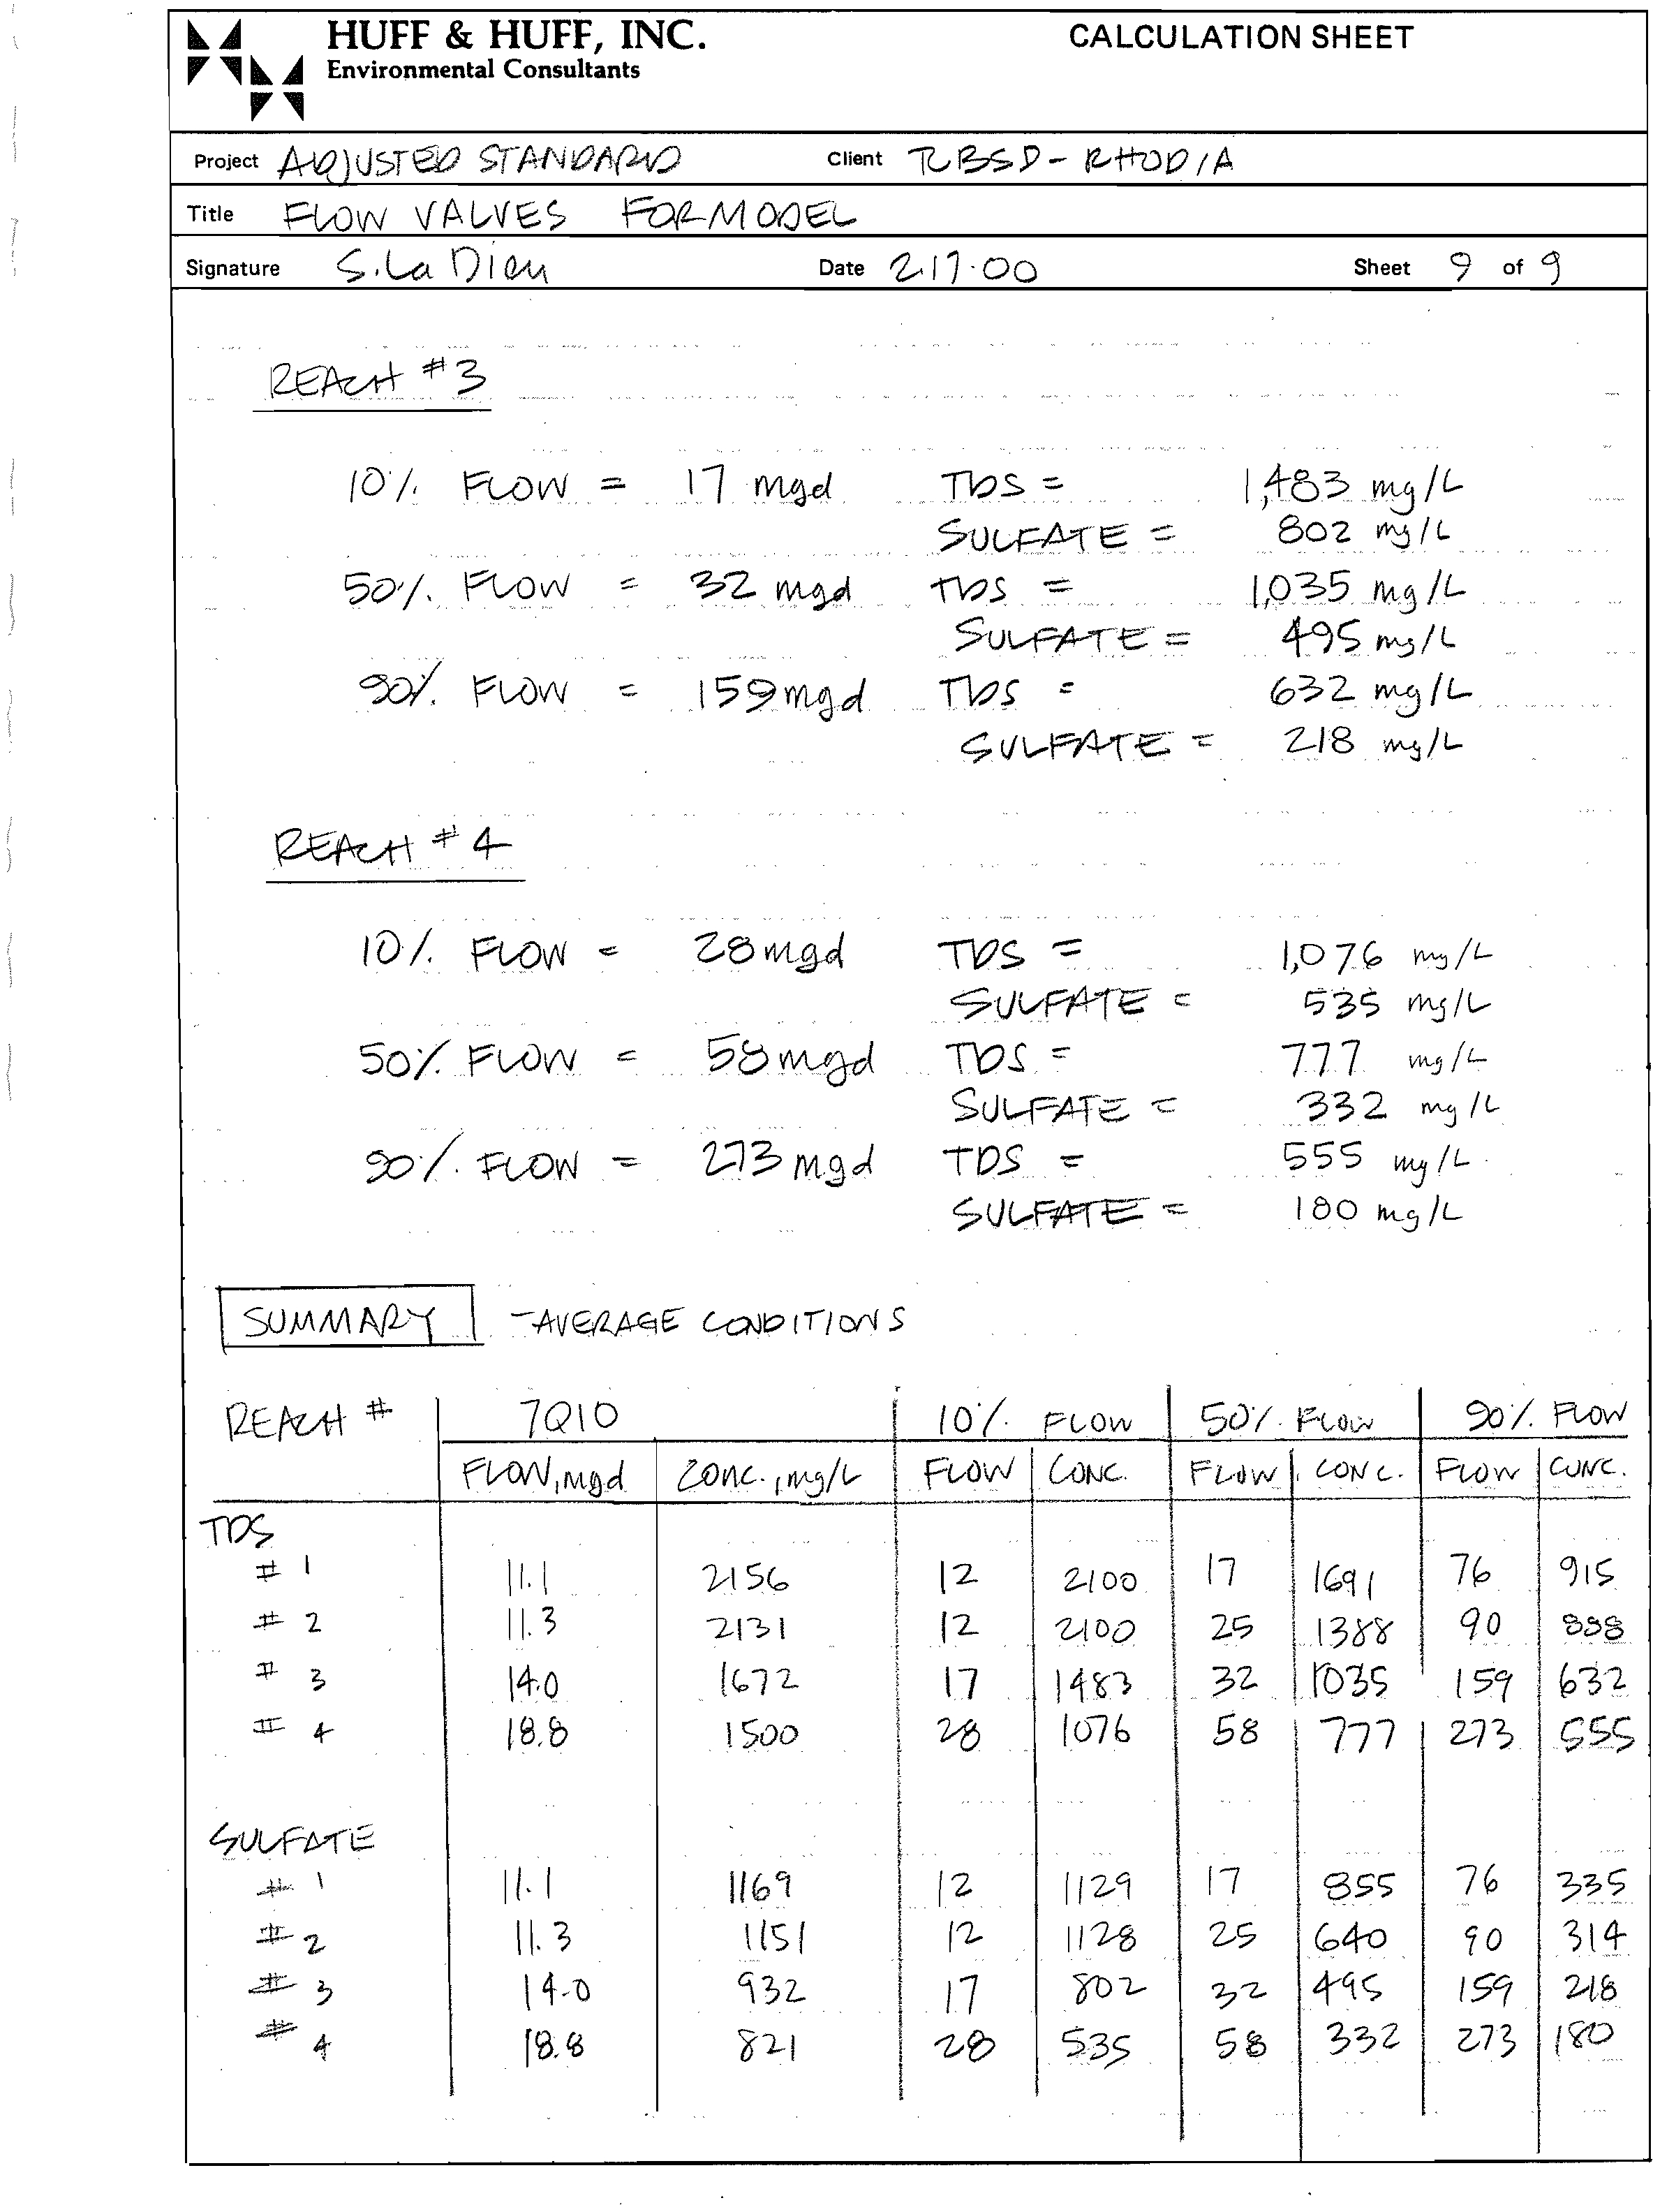 HUFF & HUFF, INC.
Environmental Consultants
CALCULATION SHEET
Project ADJUSTED STANDARD Client TCBSD - RHODIA
Title FLOW VALVES FOR MODEL
Signature S. La Dieu Date 2.17.00 Sheet 9 of 9
REACH #3
10% FLOW = 17 mgd TDS = 1,483 mg/L
SULFATE = 802 mg/L
50% FLOW = 32 mgd TDS = 1,035 mg/L
SULFATE = 495 mg/L
90% FLOW = 159 mgd TDS = 632 mg/L
SULFATE = 218 mg/L
REACH #4
10% FLOW = 28 mgd TDS = 1,076 mg/L
SULFATE = 535 mg/L
50% FLOW = 58 mgd TDS = 777 mg/L
SULFATE = 332 mg/L
90% FLOW = 273 mgd TDS = 555 mg/L
SULFATE = 180 mg/L
SUMMARY - AVERAGE CONDITIONS
REACH # 7Q10 10% FLOW 50% FLOW 90% FLOW
FLOW, mgd CONC., mg/L FLOW CONC. FLOW CONC. FLOW CONC.
TDS
# 1 11.1 2156 12 2100 17 1691 76 915
# 2 11.3 2131 12 2100 25 1388 90 888
# 3 14.0 1672 17 1483 32 1035 159 632
# 4 18.8 1500 28 1076 58 777 273 555
SULFATE
# 1 11.1 1169 12 1129 17 855 76 335
# 2 11.3 1151 12 1128 25 640 90 314
# 3 14.0 932 17 802 32 495 159 218
# 4 18.8 821 28 535 58 332 273 180